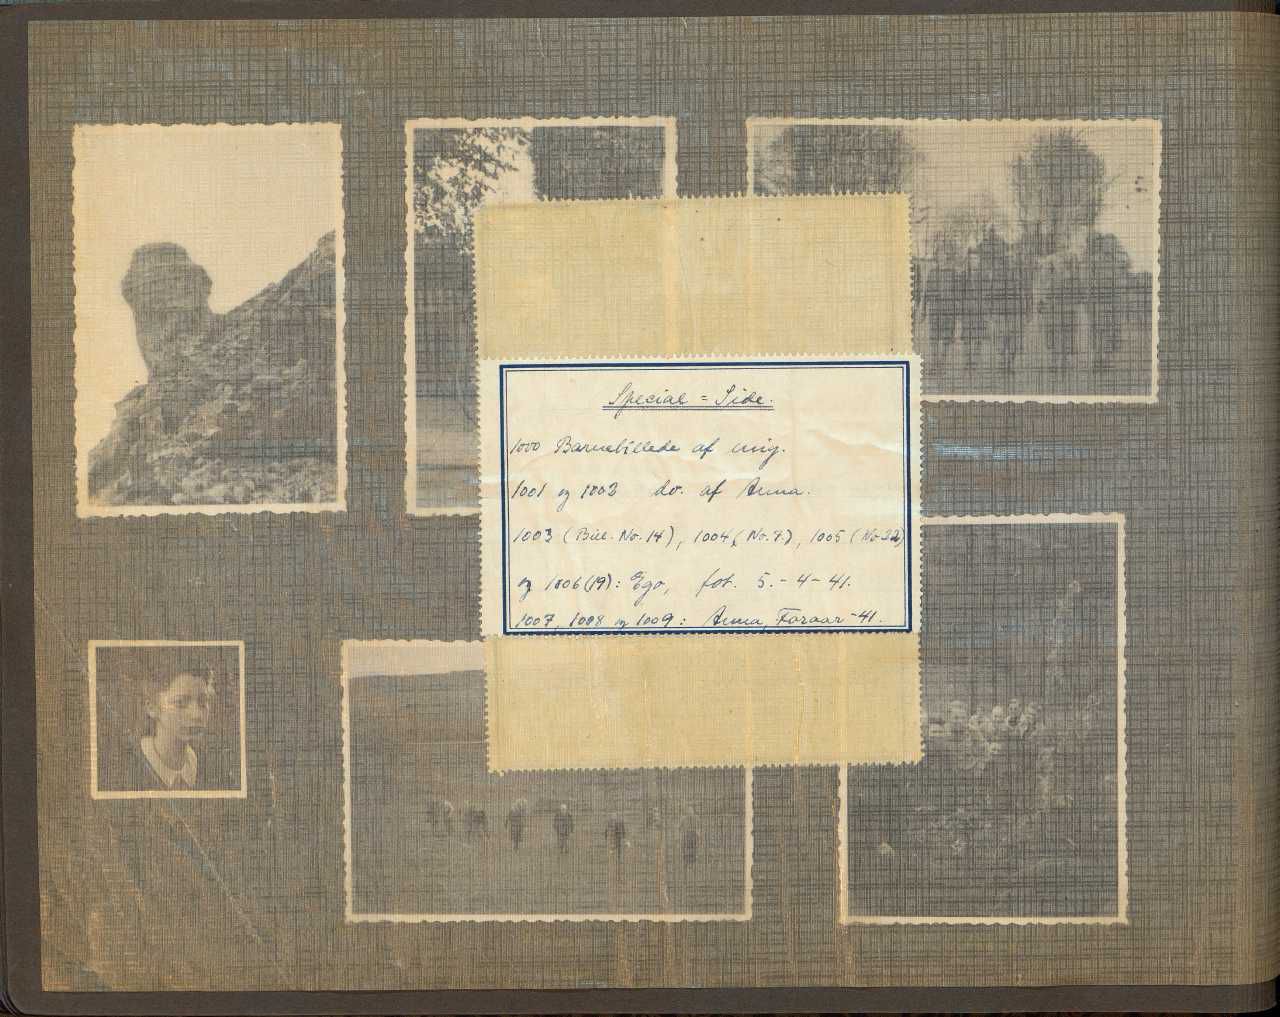 Special = Side.
1000 Barnebillede af mig.
1001 og 1002 do. af Anna.
1003 (Bill. No. 14), 1004 (No. 7.), 1005 (No 22)
og 1006 (19): Ego, fot. 5. - 4 - 41.
1007, 1008 og 1009: Anna, Foraar -41.